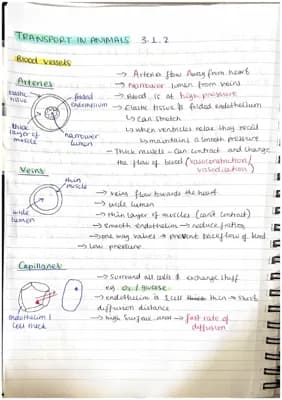 TRANSPORT IN ANIMALS 3.1.2
Blood vessels
Arteries
elastic tissue
folded endothelium
thick layer of muscle
narrower lumen
→ Arteries flow Away from heart
→ Narrower lumen from veins
→ Blood is at high pressure
→ Elastic tissue & folded endothelium
↳ can stretch
↳ when ventricles relax they recoil
↳ maintains a smooth pressure
→ Thick muscle - can contract and change
the flow of blood (vasoconstriction/
vasodilation)
Veins
thin muscle
wide lumen
→ veins flow towards the heart
→ wide lumen
→ thin layer of muscles (can't contract)
→ smooth endothelium → reduce friction
→ one way valves → prevent backflow of blood
→ low pressure
Capillaries
endothelium 1 cell thick
→ surround all cells & exchange stuff
eg O2 / glucose
→ endothelium is 1 cell thin → short
diffusion distance
→ high surface area → fast rate of
diffusion